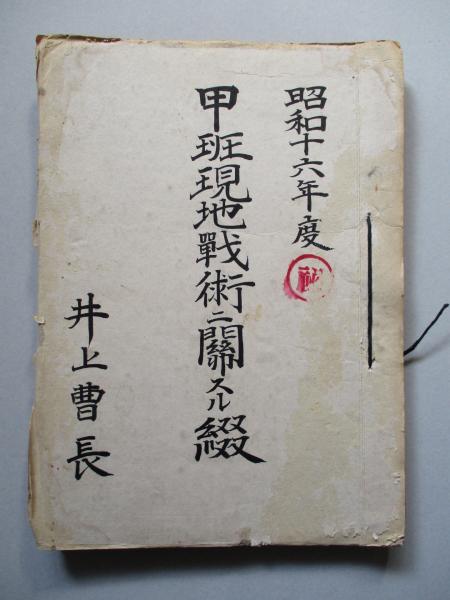 昭和十六年度
秘
甲班現地戰術ニ關スル綴
井上曹長